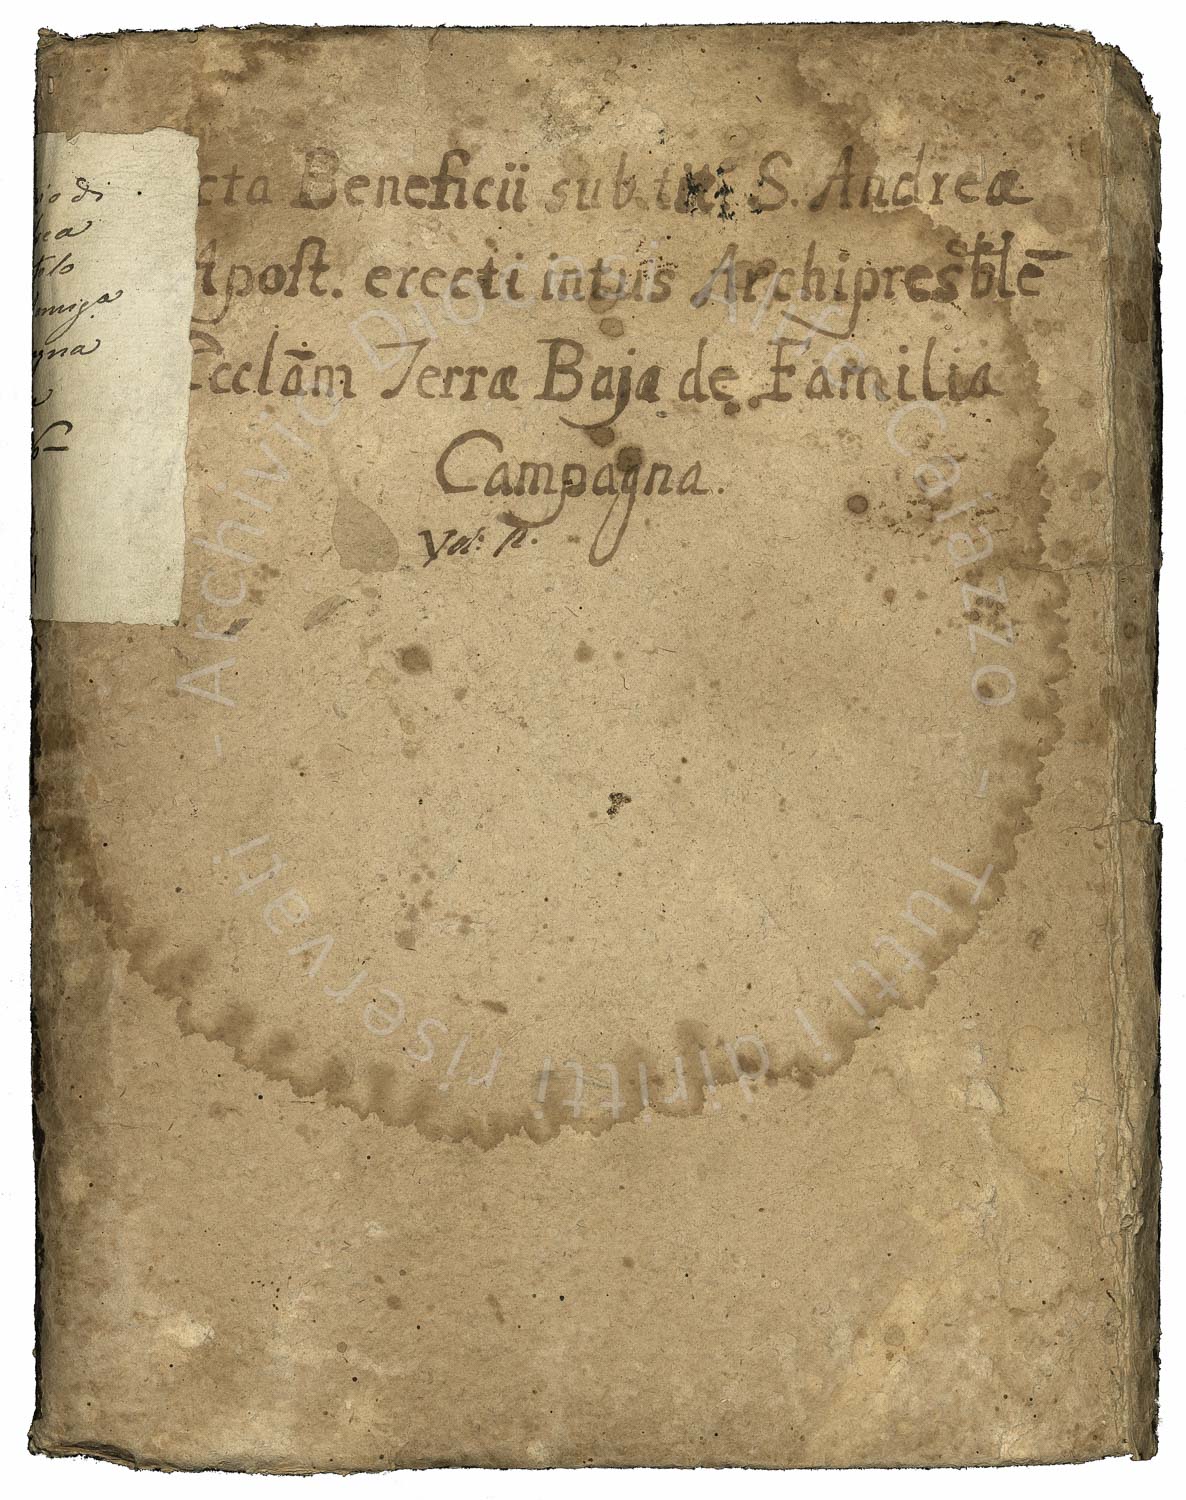 cta Beneficii sub tit: S. Andreæ
Apost. erecti intus Archipresb̃lẽ
Ecclãm Terræ Bajæ de Familia
Campagna.
Vol:
io di
ea
lo
gna
Archivio Diocesi Alife Caiazzo - Tutti i diritti riservati -